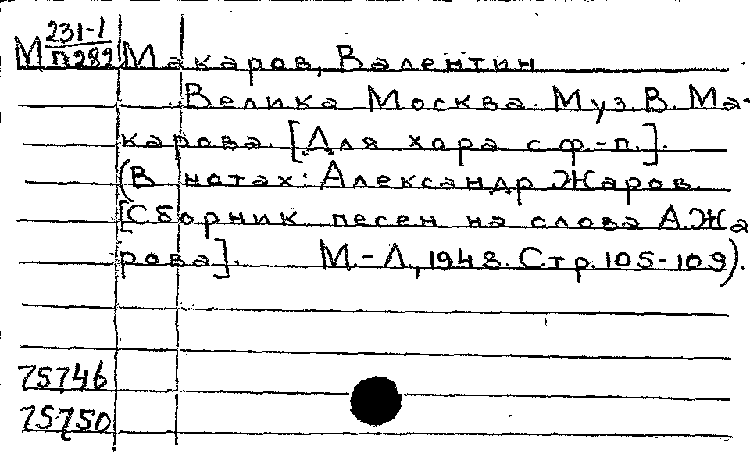 М 231-1/П289 Макаров, Валентин
Велика Москва. Муз. В. Ма-
карова. [Для хора с ф.-п.].
(В нотах: Александр Жаров.
[Сборник песен на слова А. Жа
рова]. М.-Л., 1948. Стр. 105-109).
75746
75750